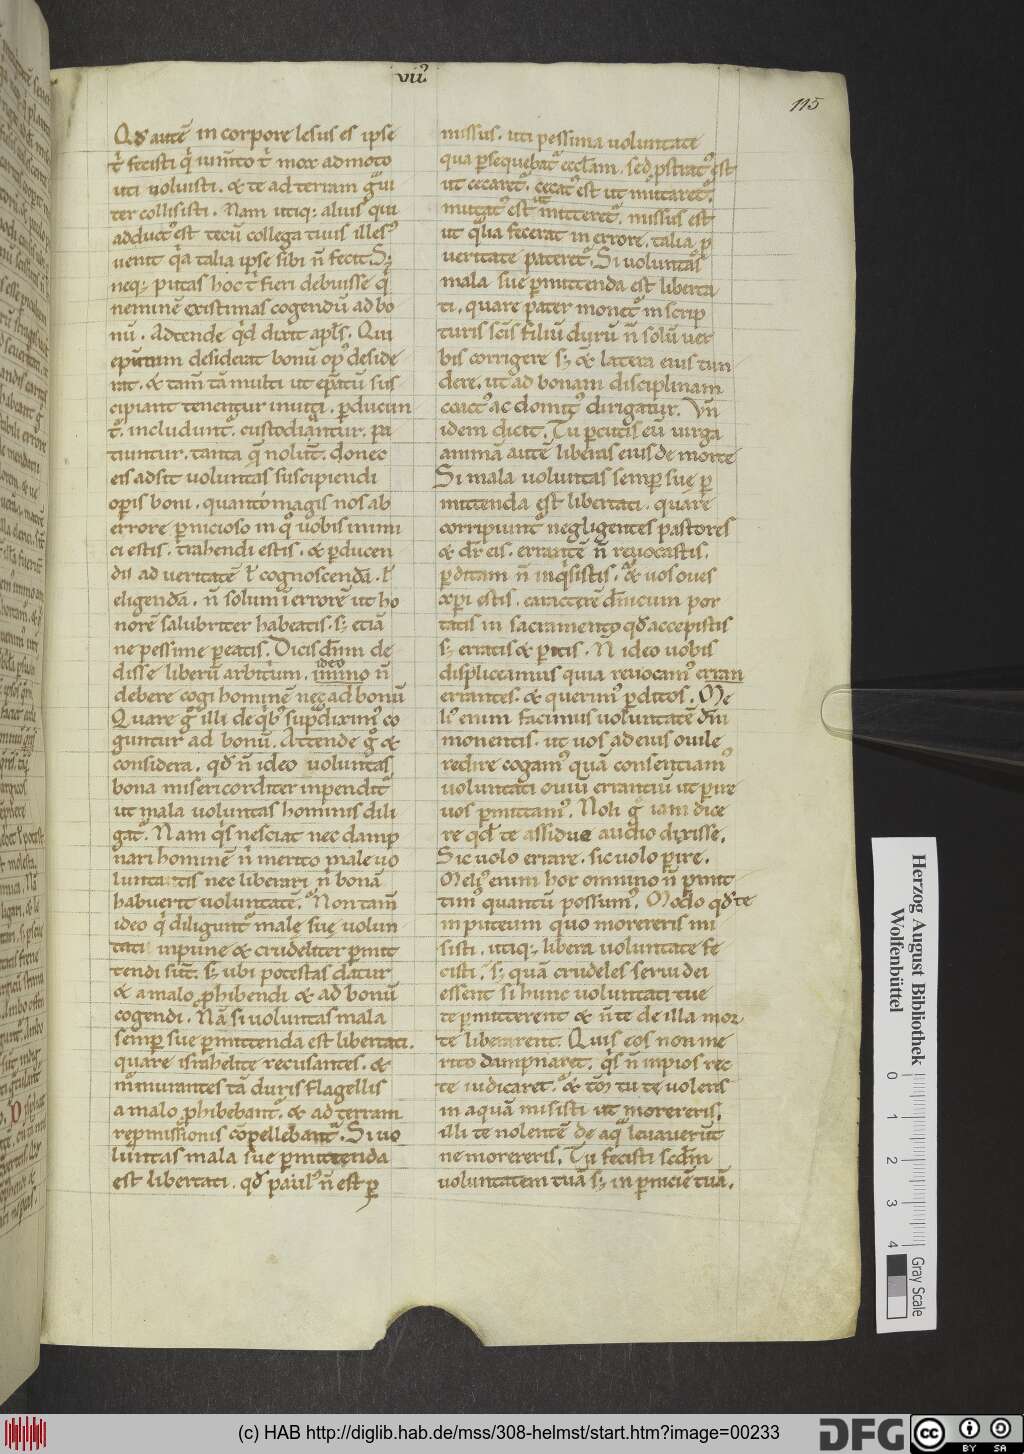 vii⁹
115
Qđ autē in corpore lesus es ipse
t̄ fecisti q̇ iumto t̄ mox admoto
uti noluisti. & te ad terram g̃ui
ter collisisti. Nam utiq; alius qui
aduct⁹ est tecū collega tuus illes⁹
uenit q̇a talia ipse sibi n̄ fecit. S;
neq; putas hoc t̄ fieri debuisse q̇
neminē existimas cogendū ad bo
nū. Adtende q̇d dicit apl̄s. Qui
ep̄utum desiderat bonū op⁹ deside
rat. & tam̄ tā multi ut ep̄atū sus
cipiant tenentur inuiti. ꝑducun
t̄. includunt̄. custodiantur. pa
tiuntur. tanta q̄ nolūt. donec
eis adsit uoluntas suscipiendi
oꝑis boni. quantomagis nos ab
errore ꝑnicioso in q̊ uobis inimi
ci estis. trahendi estis. & ꝑducen
di ad ueritatē ł cognoscendā. ł
eligendā. n̄ solum ī errorē ut ho
norē salubriter habeatis. s; etiā
ne pessime ꝑeatis. Dicis dn̄m de
disse liberū arbitrium. ideo immo n̄
debere cogi hominē nec ad bonū
Quare g̊ illi de q̇b⁹ sup̄diximus co
guntur ad bonū. Attende g̊ &
considera. qđ n̄ ideo uoluntas
bona misericorditer inpendit̄
ut mala uoluntas hominis dili
gat̄. Nam q̇s nesciat nec damp
nari hominē n̄ merito male uo
luntatis nec liberari n̄ bonā
habuerit uoluntatē. Non tam̄
ideo q̇ diligunt̄ male sue uolun
tati inpune & crudeliter ꝑmit
tendi sūt. s; ubi potestas datur
& a malo ꝓhibendi & ad bonū
cogendi. Nā si uoluntas mala
semꝑ sue ꝑmittenda est libertati.
quare israhelite recusantes. &
m̄murantes tā duris flagellis
a malo ꝓhibebant̄. & ad terram
repromissionis cōpellebant̄. Si uo
luntas mala sue ꝑmittenda
est libertati. qđ paul⁹ n̄ est ꝑ
missus. uti pessima uoluntate
qua ꝑsequebat̄ eccl̄am. sed ꝓstrat⁹ est
ut cecaret̄. cecat⁹ est ut mutaret̄.
mutat⁹ est ut mitteret̄. missus est
ut q̄lia fecerat in errore. talia ꝓ
ueritate pateret̄. Si uoluntas
mala sue ꝑmittenda est liberta
ti. quare pater monet̄ in scrip
turis scīs filiū durū n̄ solū uer
bis corrigere s; & latera eius tun
dere. ut ad bonam disciplinam
coact⁹ ac domit⁹ dirigatur. Vn̄
idem dicit. Tu ꝑcutis eū uirga
animā autē liberas eius de morte
Si mala uoluntas semꝑ sue ꝑ
mittenda est libertati. quare
corripiunt̄ negligentes pastores
& dr̄ eis. errantē n̄ reuocastis.
ꝑditam n̄ inq̇sistis. & uos oues
xp̄i estis. caracterē dn̄icum por
tatis in sacramento qđ accepistis
s; erratis & ꝑitis. N̄ ideo uobis
displiceamus quia reuocam⁹ erran
errantes. & querim⁹ ꝑditos. Me
li⁹ enim facimus uoluntatē dn̄i
monentis. ut uos ad eius ouile
redire cogam⁹ quā consentiam⁹
uoluntati ouiū errantiū ut ꝑire
uos ꝑmittam⁹. Noli g̊ iam dice
re qđ te assidue audio dixisse.
Sic uolo errare. sic uolo ꝑire.
Meli⁹ enim hoc omnino n̄ ꝑmit
tim quantū possum⁹. Modo qđ te
in puteum quo morereris mi
sisti. utiq; libera uoluntate fe
cisti. s; quā crudeles serui dei
essent si hunc uoluntati tue
te ꝑmitterent & n̄ te de illa mor
te liberarent. Quis eos non me
rito dampnaret. q̇s n̄ inpios rec
te iudicaret̄. & tm̄ tu te uolens
in aquā misisti ut morereris.
illi te nolentē de aq̄ leuauerūt
ne morereris. Tu fecisti scd̄m
uoluntatem tuā s; in ꝑniciē tuā.
Herzog August Bibliothek
Wolfenbüttel
0 1 2 3 4
Gray Scale
(c) HAB http://diglib.hab.de/mss/308-helmst/start.htm?image=00233
DFG
cc BY SA